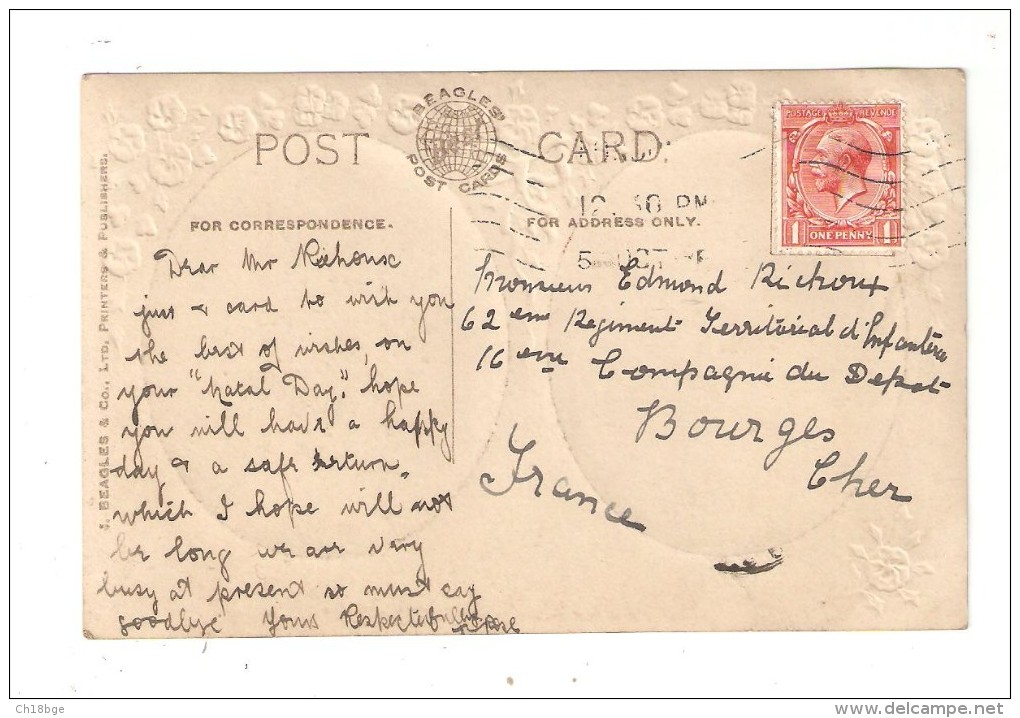 BEAGLES'
POST CARDS
POST CARD.
POSTAGE REVENUE
1 ONE PENNY 1
PM
5 OCT
FOR CORRESPONDENCE.
FOR ADDRESS ONLY.
J. BEAGLES & CO., LTD, PRINTERS & PUBLISHERS.
Dear Mr
just a card to wish you
the best of wishes, on
your "Natal Day", hope
you will have a happy
day & a safe return.
which I hope will not
be long we are very
busy at present so must say
goodbye Yours Respectfully
Monsieur Edmond Richoux
62 eme Regiment Territorial d'Infantérie
16 eme Compagnie du Depot
Bourges
Cher
France
Ch18bge
delcampe.net